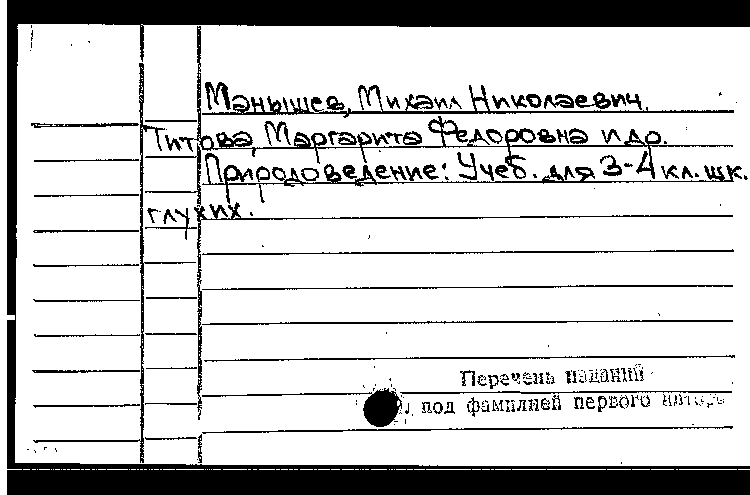 Манышев, Михаил Николаевич.
Титова, Маргарита Федоровна и др.
Природоведение: Учеб. для 3-4 кл. шк.
глухих.
Перечень изданий
под фамилией первого автора